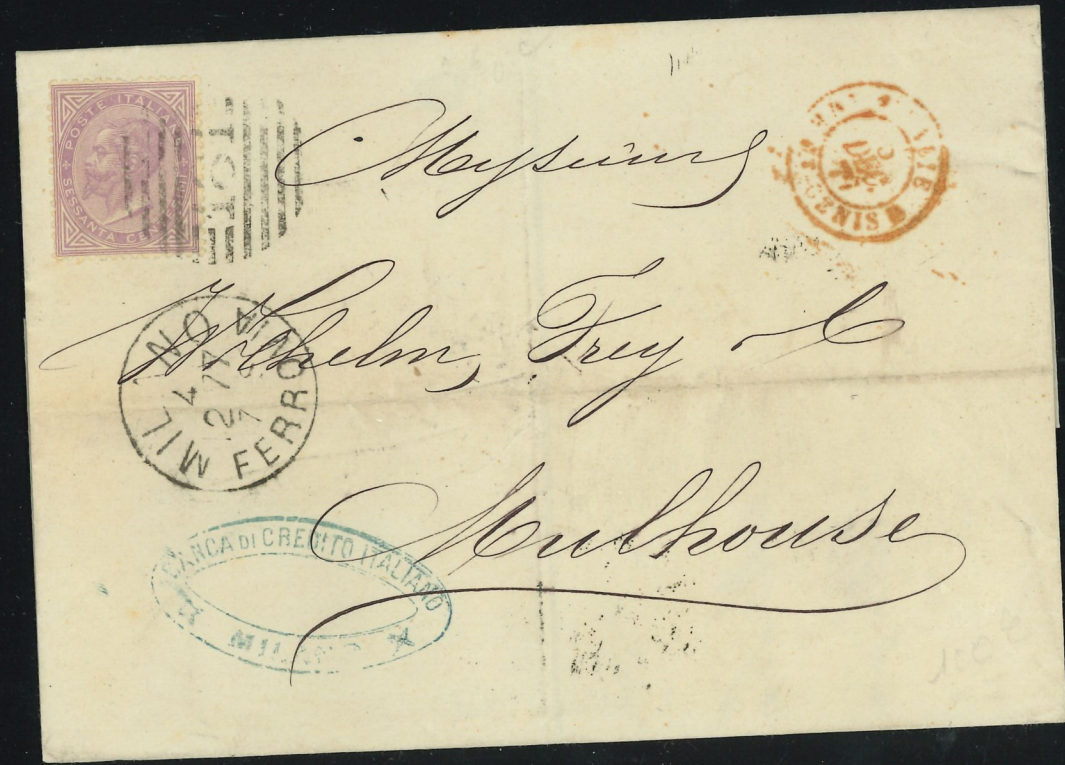 POSTE ITALIANE
SESSANTA CE
Messieurs
Wilhelm, Frey & C
Mulhouse
MILANO
FERROVIA
4
12 77
7 S
BANCA DI CREDITO ITALIANO
MILANO
CENIS